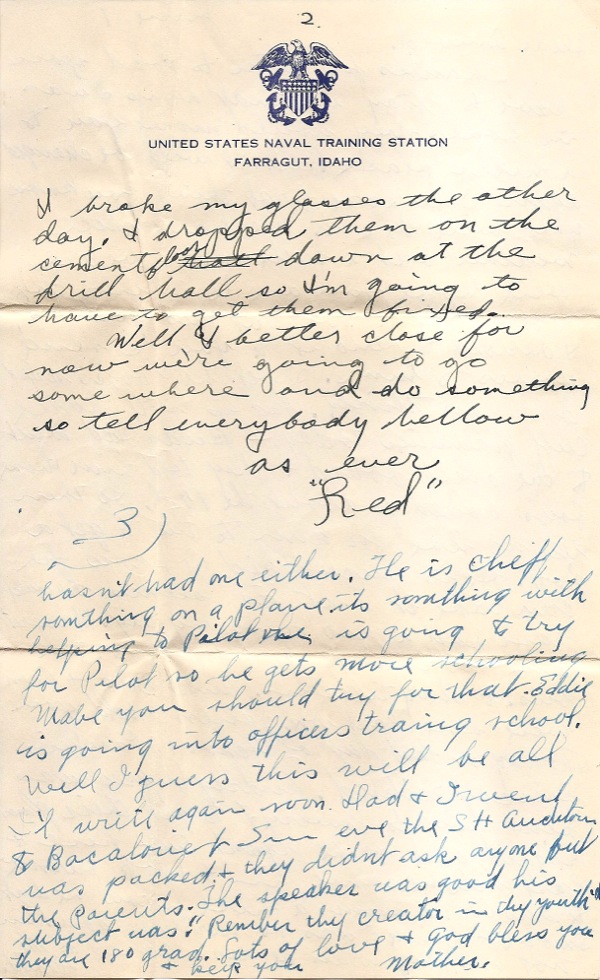 2
UNITED STATES NAVAL TRAINING STATION
FARRAGUT, IDAHO
I broke my glasses the other
day. I dropped them on the
cement floor hall down at the
drill hall so I'm going to
have to get them fixed.
Well I better close for
now we're going to go
some where and do something
so tell everybody hellow
as ever
"Red"
3)
hasn't had one either. He is cheif
somthing on a plane its somthing with
helping to Pilot is going to try
for Pilot so he gets more schooling
Mabe you should try for that. Eddie
is going into officers traing school.
Well I guess this will be all
I'll write again soon. Dad & I went
to Bacaloriet Sun eve the SH Auditorium
was packed & they didnt ask anyone but
the Parents. The speaker was good his
subject was: "Rember thy creator in thy youth"
they are 180 grad. Lots of love & God bless you
& keep you Mother.